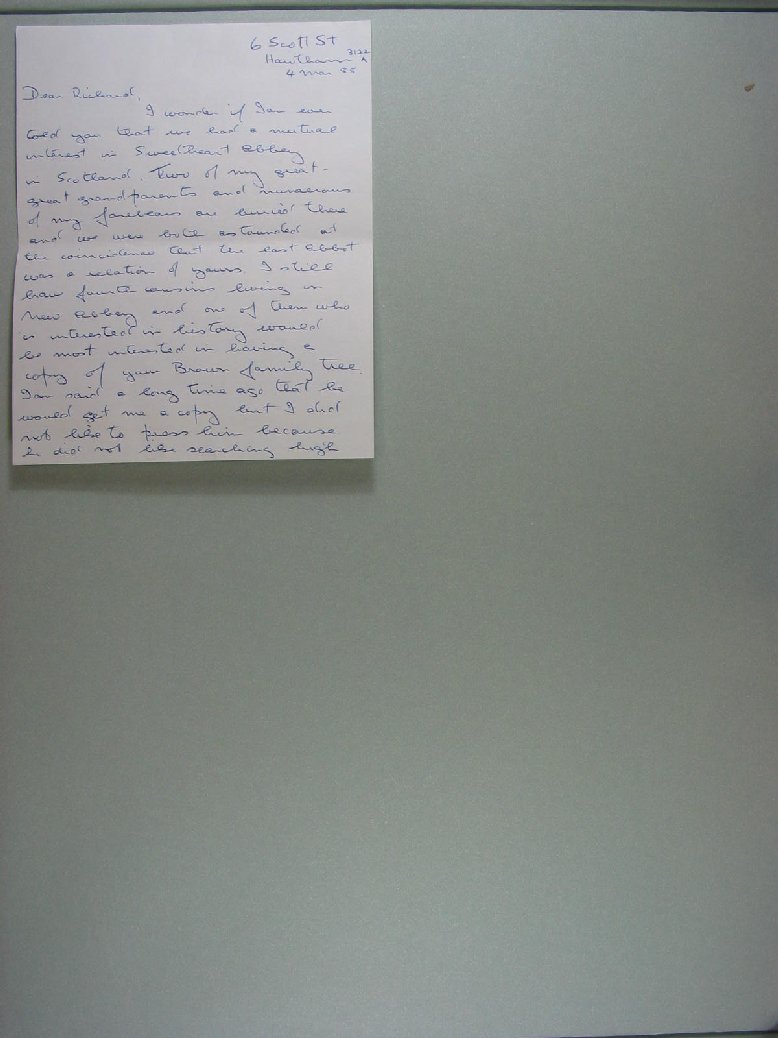 6 Scott St
Hawthorn 3122
4 Mar 85
Dear Richard,
I wonder if Ian ever
told you that we had a mutual
interest in Sweetheart Abbey
in Scotland. Two of my great-
great grandparents and numerous
of my forebears are buried there
and we were both astounded at
the coincidence that the last Abbot
was a relation of yours. I still
have fourth cousins living in
New Abbey and one of them who
is interested in history would
be most interested in having a
copy of your Brown family tree.
Ian said a long time ago that he
would get me a copy but I did
not like to press him because
he did not like searching high